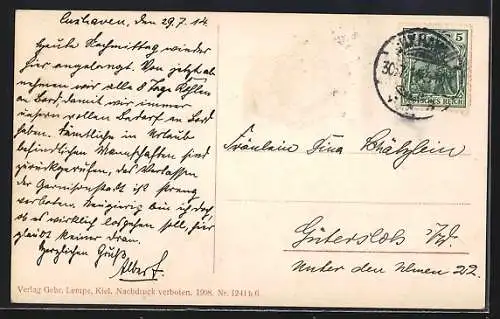 Cuxhaven, den 29.7.14.
Heute Nachmittag wieder
hier angelangt. Von jetzt ab
nehmen wir alle 8 Tage Kohlen
an Bord, damit wir immer
unsern vollen Bedarf an Bord
haben. Sämtliche in Urlaub
befindlichen Mannschaften sind
zurückgerufen, das Verlassen
der Garnisonstadt ist streng
verboten. Neugierig bin ich doch,
ob es wirklich losgehen soll, hier
glaubt keiner dran.
Herzlichen Gruß
Albert.
5
DEUTSCHES REICH
Fräulein Tina
Gütersloh i/W.
Unter den Ulmen 22.
Verlag Gebr. Lempe, Kiel. Nachdruck verboten. 1908. Nr. 1241 b 6